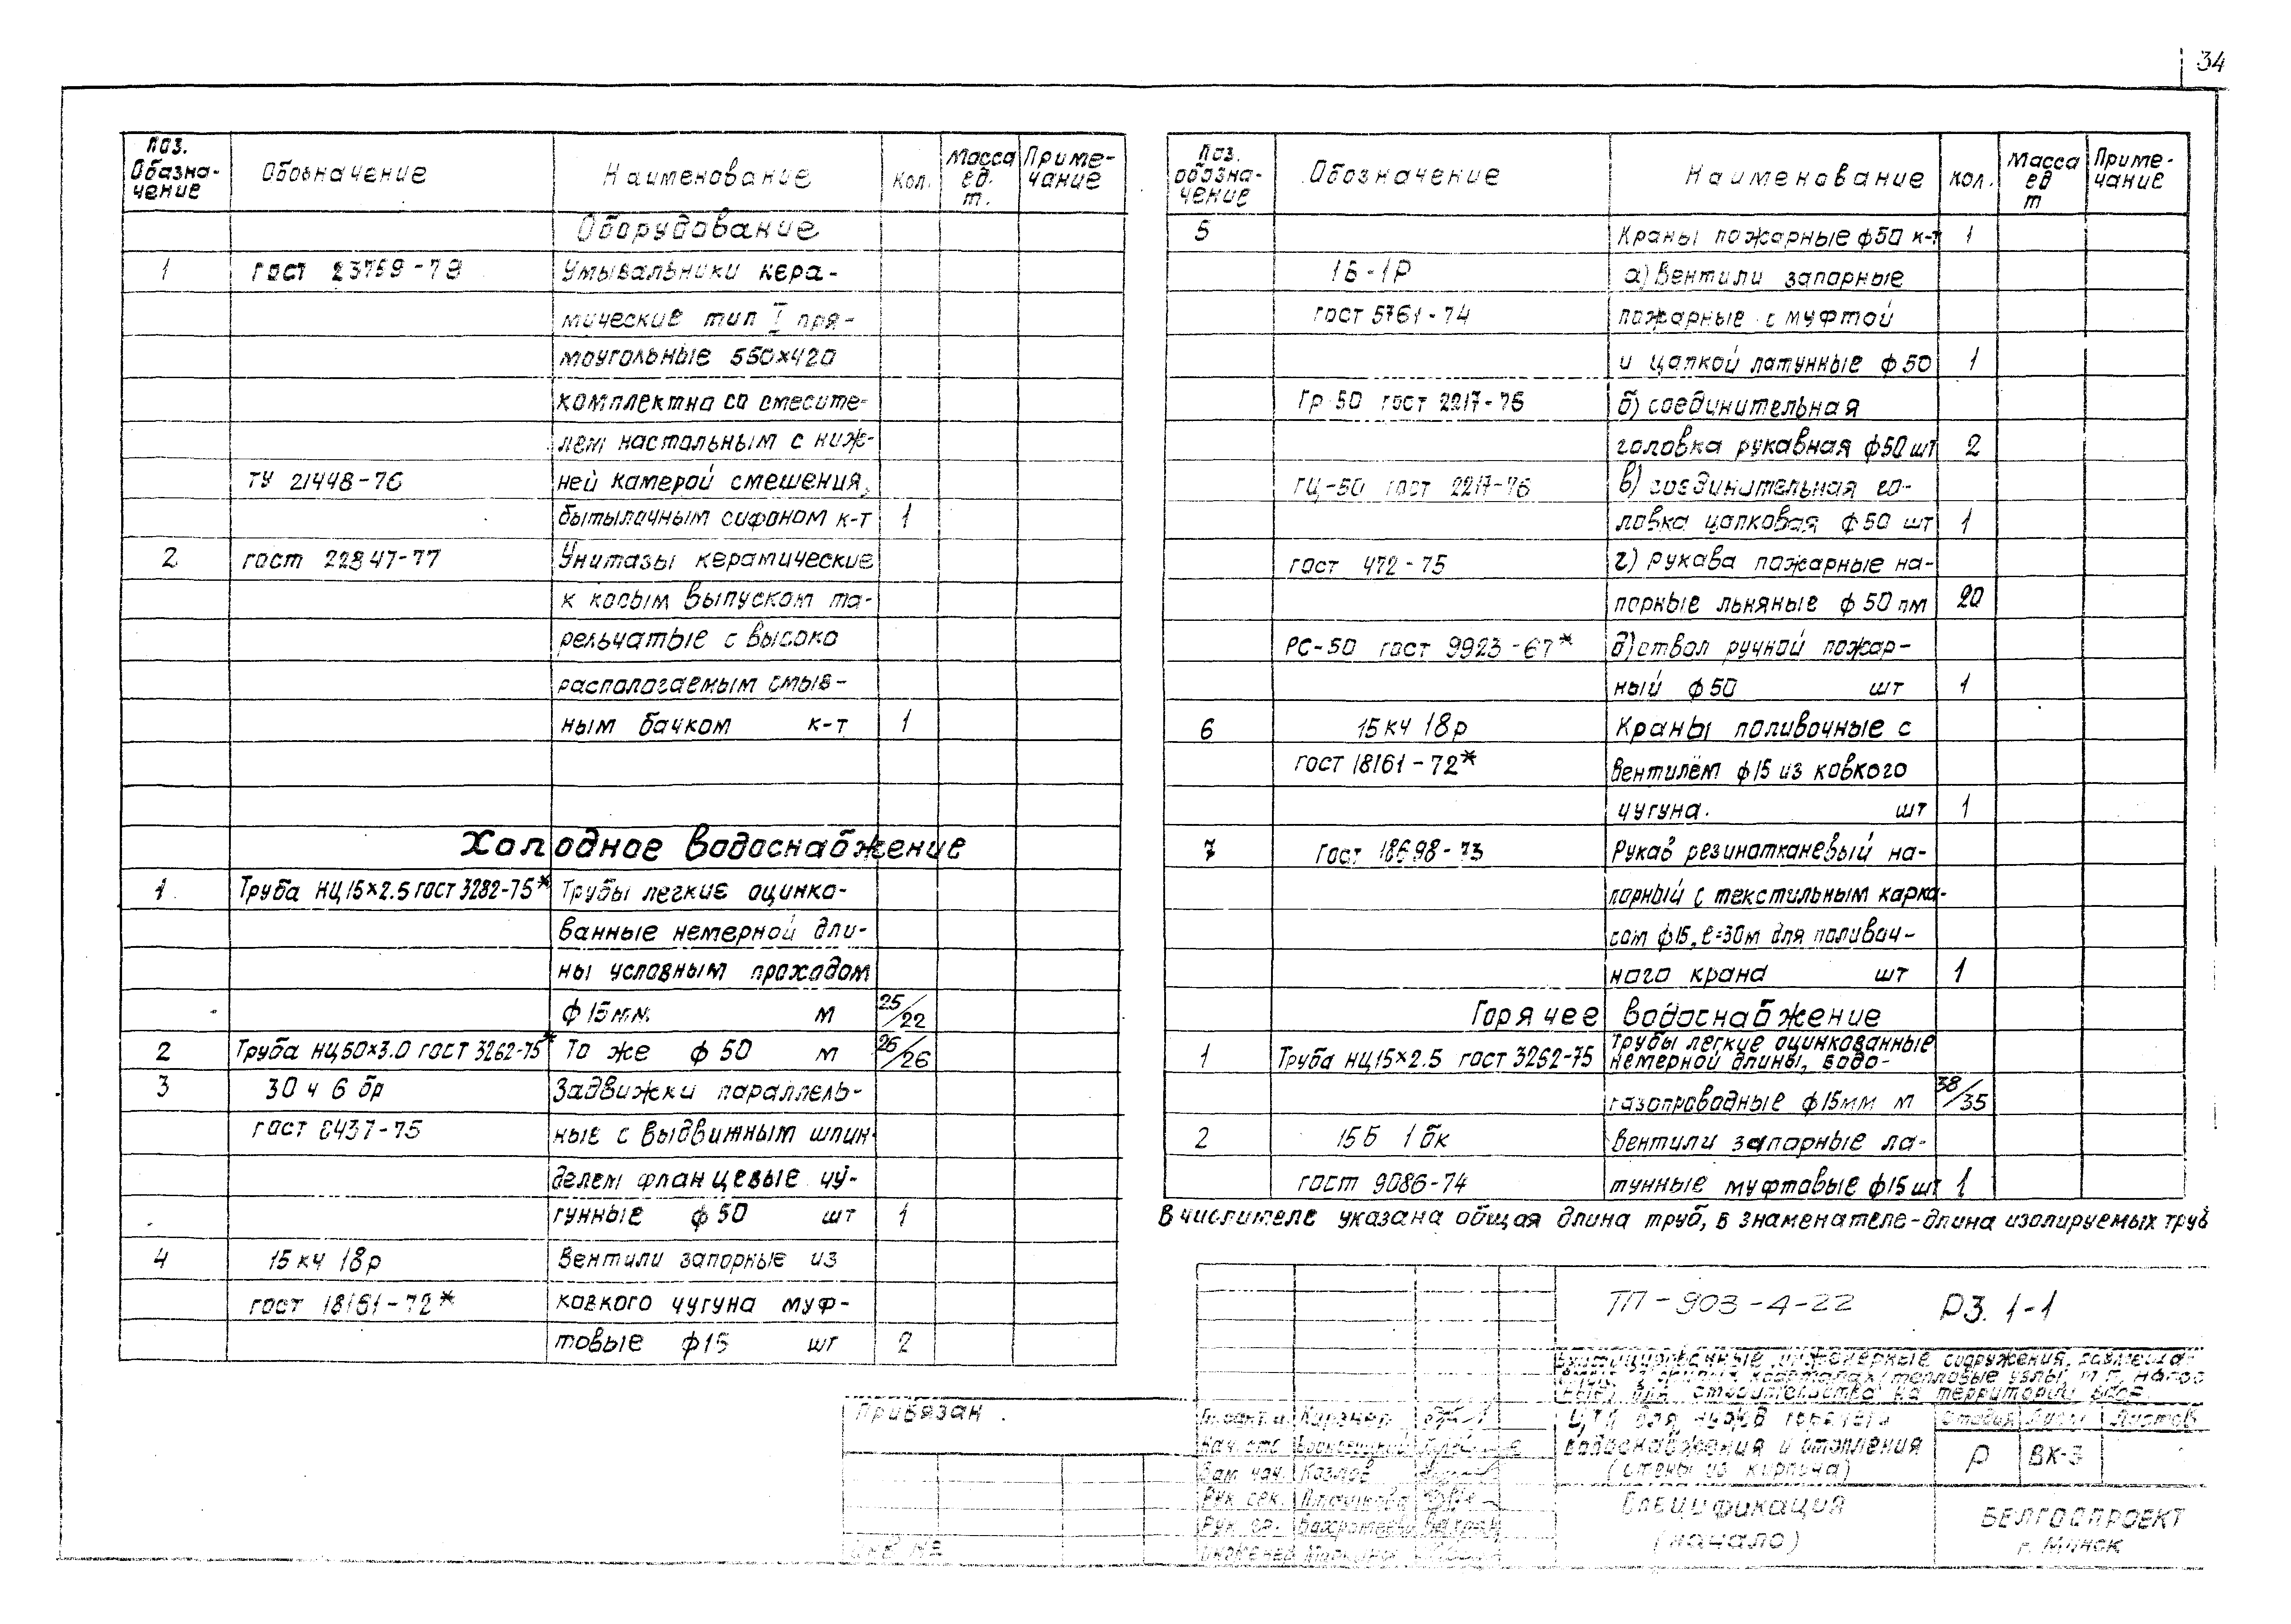 34
Поз. Обазна- чение Обозначение Наименование Кол. Масса ед. т. Приме- чание
Оборудование
1 гост 23759-79 Умывальники кера-
мические тип I пря-
моугольные 550×420
комплектна со смесите-
лем настольным с ниж-
ТУ 21448-76 ней камерой смешения,
бытылачным сифоном к-т 1
2 гост 22847-77 Унитазы керамические
к косым выпуском та-
рельчатые с высоко
распологаемым смыв-
ным бачком к-т 1
Холодное водоснабжение
1 Труба НЦ15×2.5 гост 3282-75* Трубы легкие оцинко-
ванные немерной дли-
ны условным проходом
ф15мм. м 25/22
2 Труба НЦ50×3.0 гост 3262-75* То же ф50 м 26/26
3 30 ч 6 бр Задвижки параллель-
гост 8437-75 ные с выдвижным шпин-
делем фланцевые чу-
гунные ф50 шт 1
4 15 кч 18р Вентили запорные из
гост 18161-72* ковкого чугуна муф-
товые ф15 шт 2
Поз. обозна- чение Обозначение Наименование кол. Масса ед т Приме- чание
5 Краны пожарные ф50 к-т 1
1Б-1Р а) Вентили запорные
гост 5761-74 пожарные с муфтой
и цапкой латунные ф50 1
Гр-50 гост 2217-76 б) соединительная
головка рукавная ф50 шт 2
ГЦ-50 гост 2217-76 в) соединительная го-
ловка цапковая ф50 шт 1
гост 472-75 г) рукава пожарные на-
порные льняные ф50 пм 20
РС-50 гост 9923-67* д) ствол ручной пожар-
ный ф50 шт 1
6 15 кч 18р Краны поливочные с
гост 18161-72* вентилем ф15 из ковкого
чугуна. шт 1
7 гост 18698-73 Рукав резинотканевый на-
порный с текстильным карка-
сом ф15, ℓ=30м для поливоч-
ного крана шт 1
Горячее водоснабжение
1 Труба НЦ15×2.5 гост 3262-75 Трубы легкие оцинкованные
немерной длины, водо-
газопроводные ф15мм м 38/35
2 15Б 1бк Вентили запорные ла-
гост 9086-74 тунные муфтовые ф15 шт 1
В числителе указана общая длина труб, в знаменателе-длина изолируемых труб
ТП-903-4-22 РЗ. 1-1
Унифицированные инженерные сооружения,
(тепловые узлы,
для строительства на территории БССР
Привязан
ЦТП для нужд горячего
водоснабжения и отопления
(стены из кирпича)
Стадия Лист Листов
Р ВК-3
Зам нач. Козлов
Рук сек.
Рук гр.
Инженер
Спецификация
(начало)
БЕЛГОСПРОЕКТ
г. Минск
Инв №